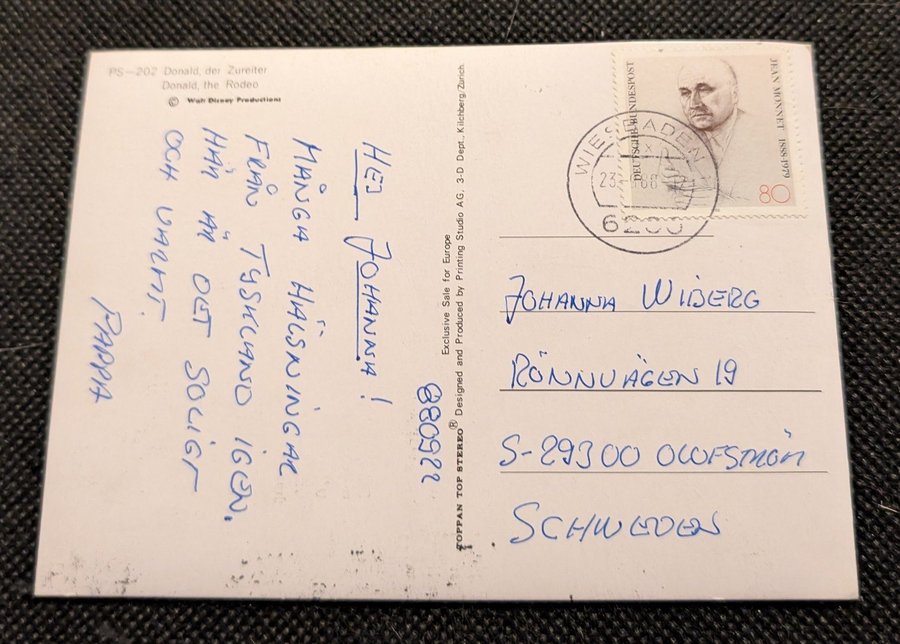 PS—202 Donald, der Zureiter
Donald, the Rodeo
© Walt Disney Productions
880922
HEJ JOHANNA!
MÅNGA HÄLSNINGAR
FRÅN TYSKLAND IGEN.
HÄR ÄR DET SOLIGT
OCH VARMT.
PAPPA
Exclusive Sale for Europe
TOPPAN TOP STEREO® Designed and Produced by Printing Studio AG, 3-D Dept., Kilchberg/Zürich.
DEUTSCHE BUNDESPOST
JEAN MONNET 1888-1979
80
WIESBADEN
JOHANNA WIBERG
RÖNNVÄGEN 19
S-29300 OLOFSTRÖM
SCHWEDEN